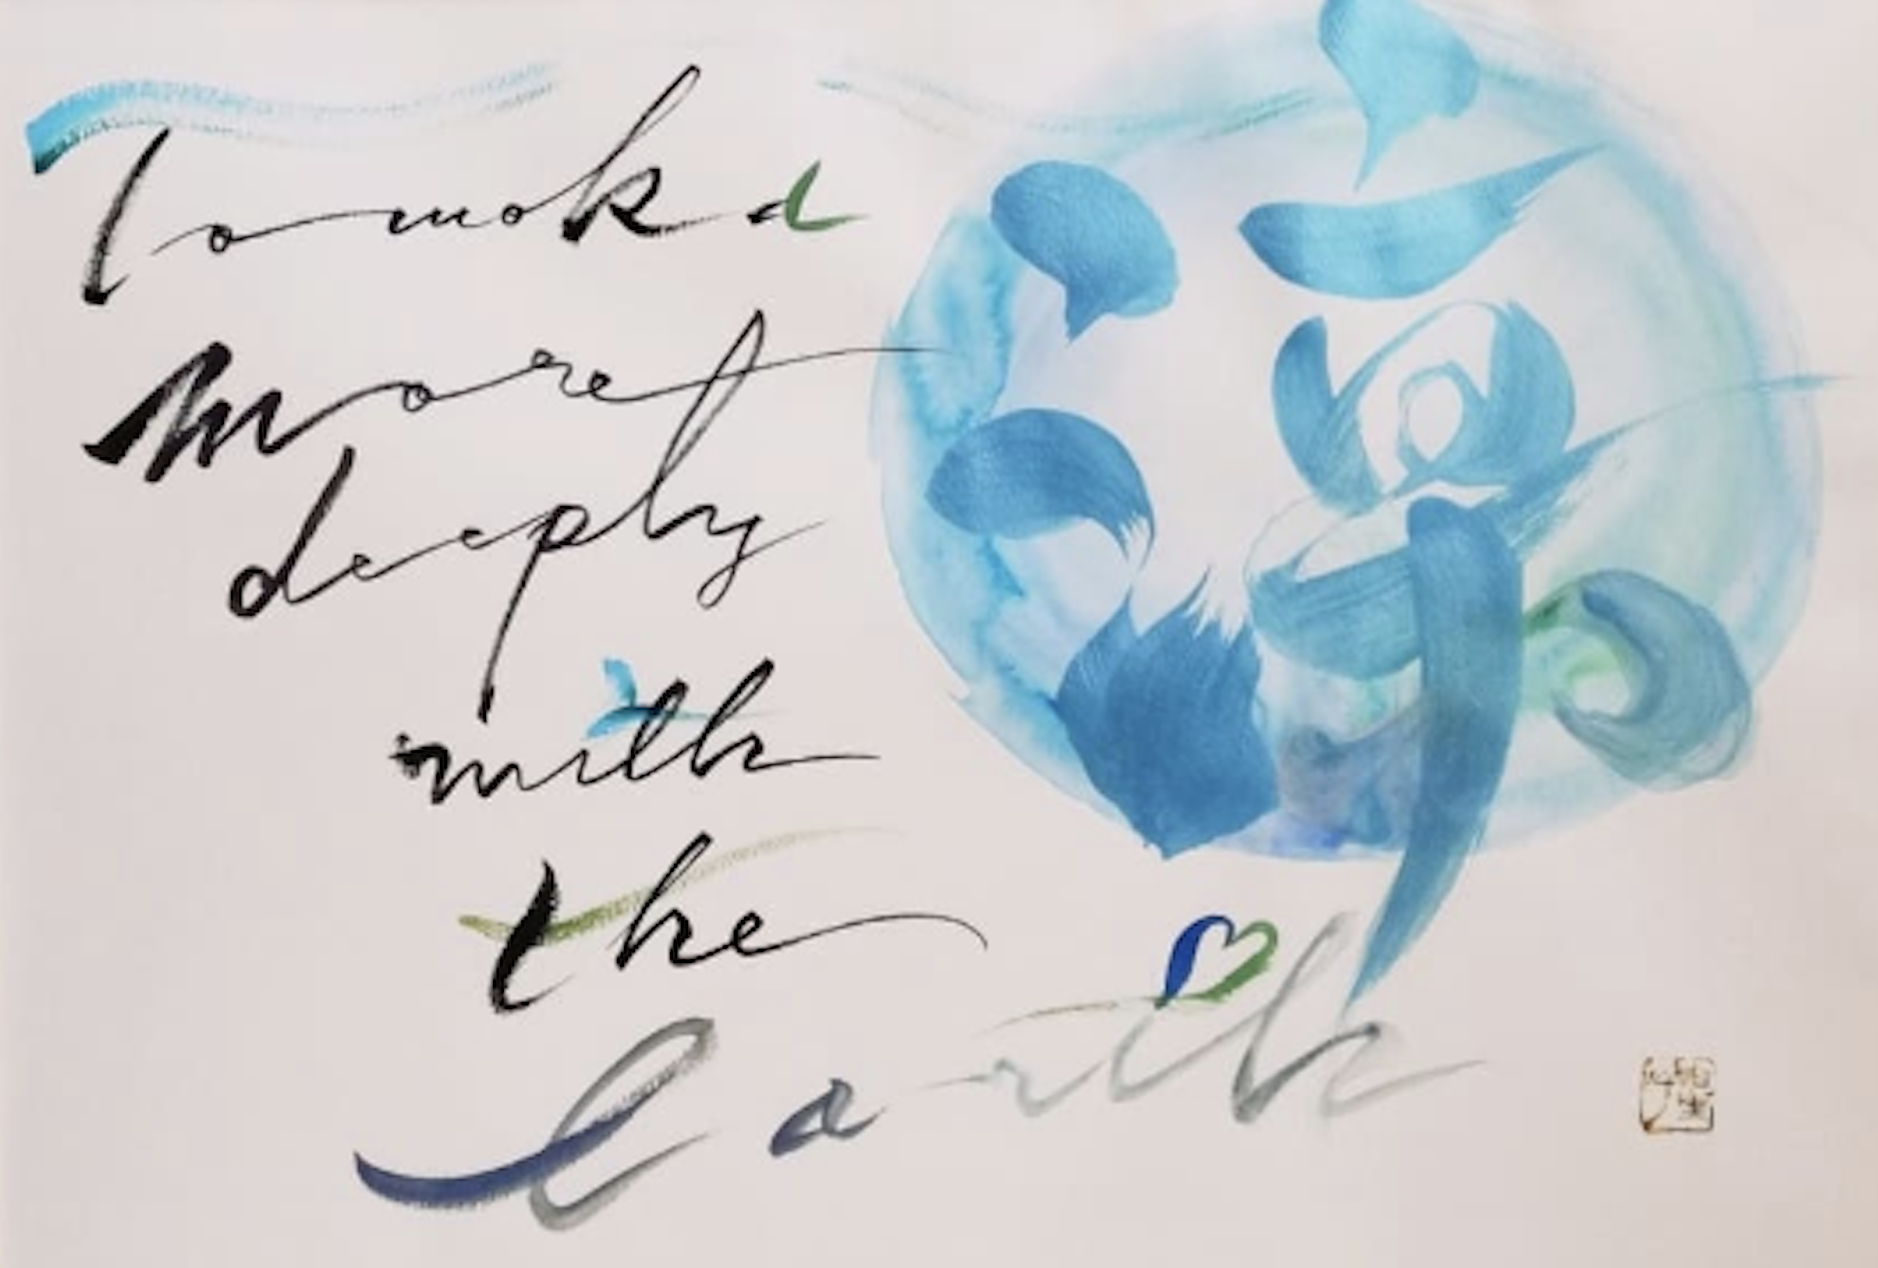 Tomoka
more
deeply
with
the
Earth